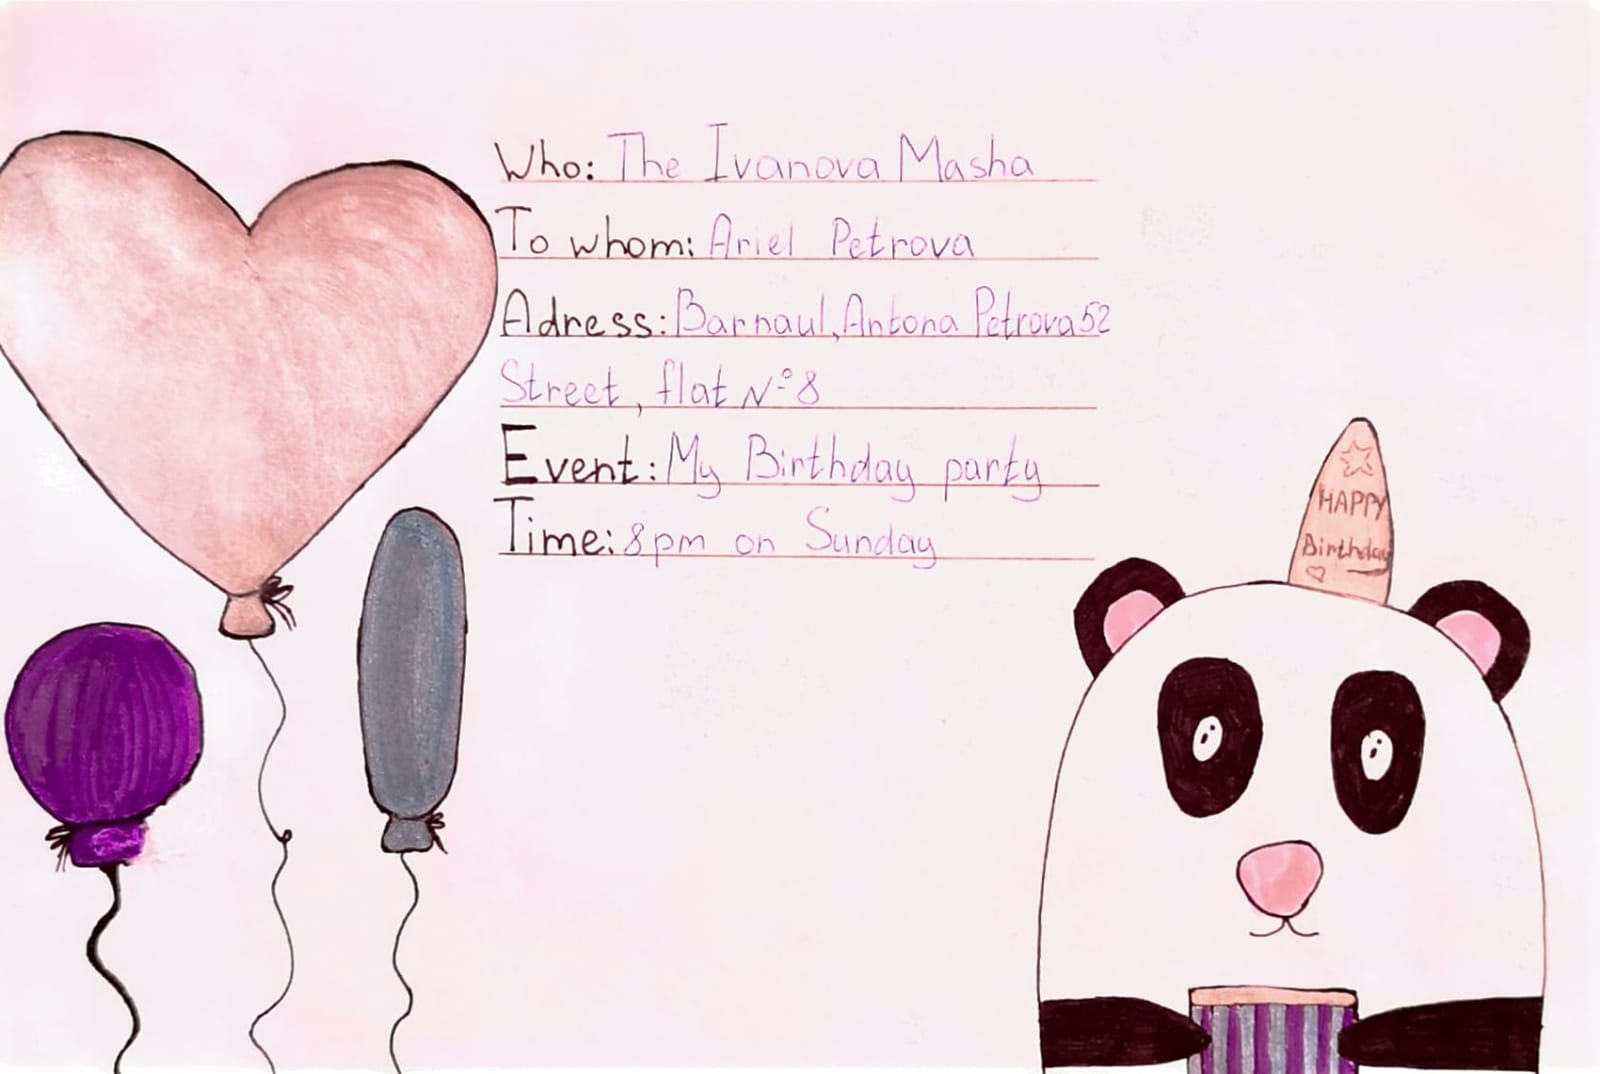 Who: The Ivanova Masha
To whom: Ariel Petrova
Adress: Barnaul, Antona Petrova 52
Street, flat N°8
Event: My Birthday party
Time: 8pm on Sunday
HAPPY
Birthday